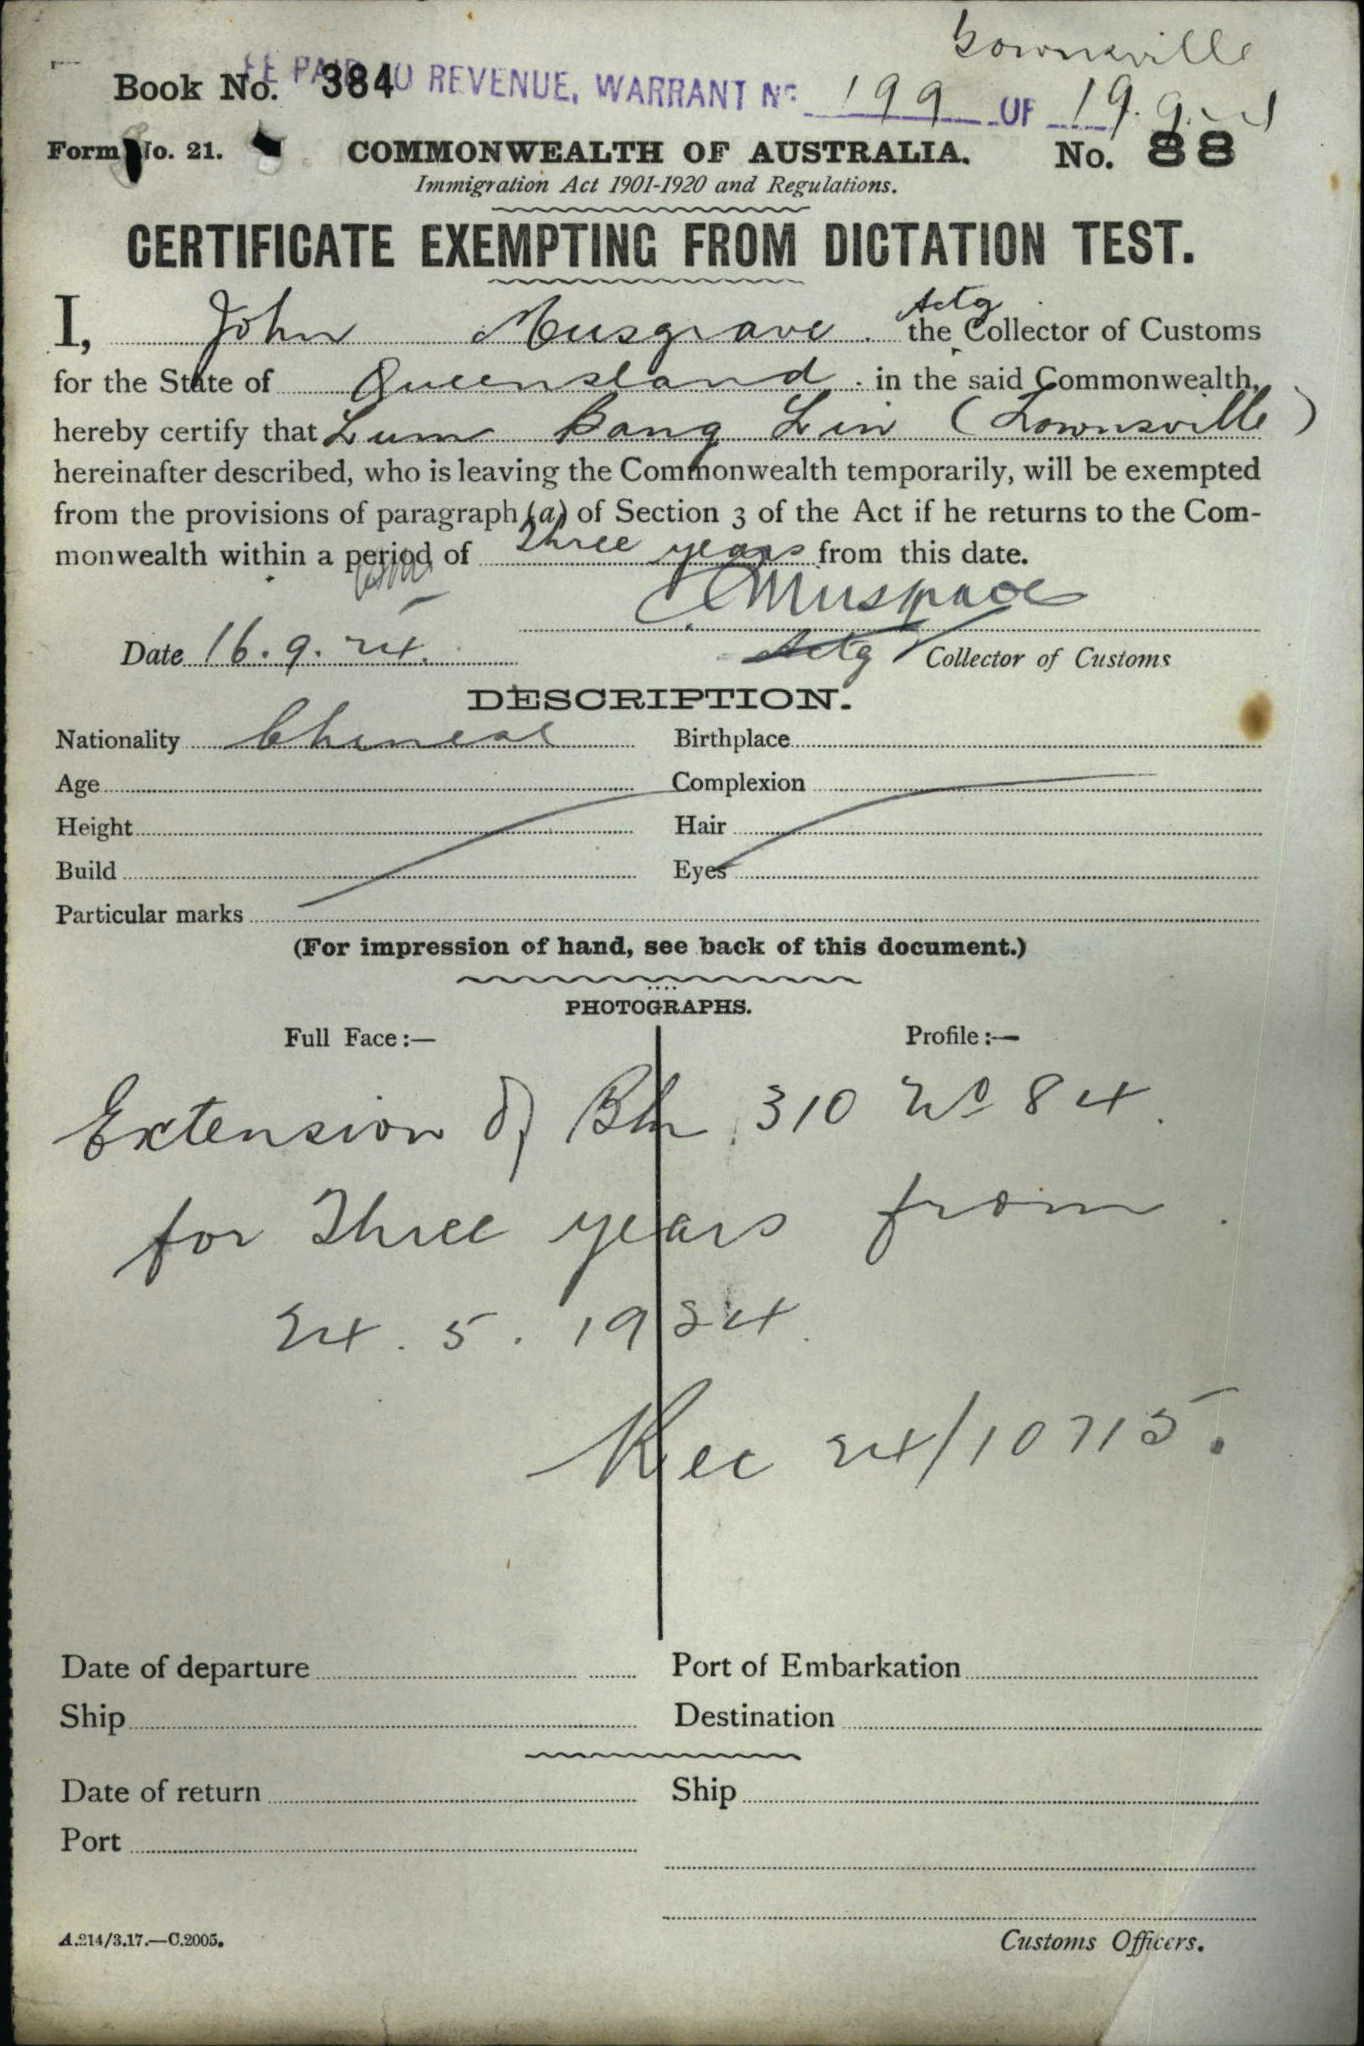 Townsville
Book No. 384
FEE PAID TO REVENUE, WARRANT No. 199 OF 19.9.
Form No. 21. COMMONWEALTH OF AUSTRALIA. No. 88
Immigration Act 1901-1920 and Regulations.
CERTIFICATE EXEMPTING FROM DICTATION TEST.
I, John Musgrave Actg the Collector of Customs
for the State of Queensland in the said Commonwealth,
hereby certify that Lum Bang Lin (Townsville)
hereinafter described, who is leaving the Commonwealth temporarily, will be exempted
from the provisions of paragraph (a) of Section 3 of the Act if he returns to the Com-
monwealth within a period of Three years from this date.
Musgrave
Date 16.9.24. Actg Collector of Customs
DESCRIPTION.
Nationality Chinese Birthplace
Age Complexion
Height Hair
Build Eyes
Particular marks
(For impression of hand, see back of this document.)
PHOTOGRAPHS.
Full Face:— Profile:—
Extension of Bk 310 No 84.
for Three years from
24.5.1924.
Rec 24/10715.
Date of departure Port of Embarkation
Ship Destination
Date of return Ship
Port
A.214/3.17.—C.2005. Customs Officers.